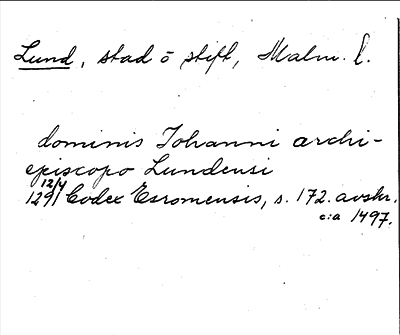 Lund, stad o stift, Malm. l.
dominis Johanni archi-
episcopo Lundensi
12/4
1291 Codex Esromensis, s. 172. avskr.
c:a 1497.